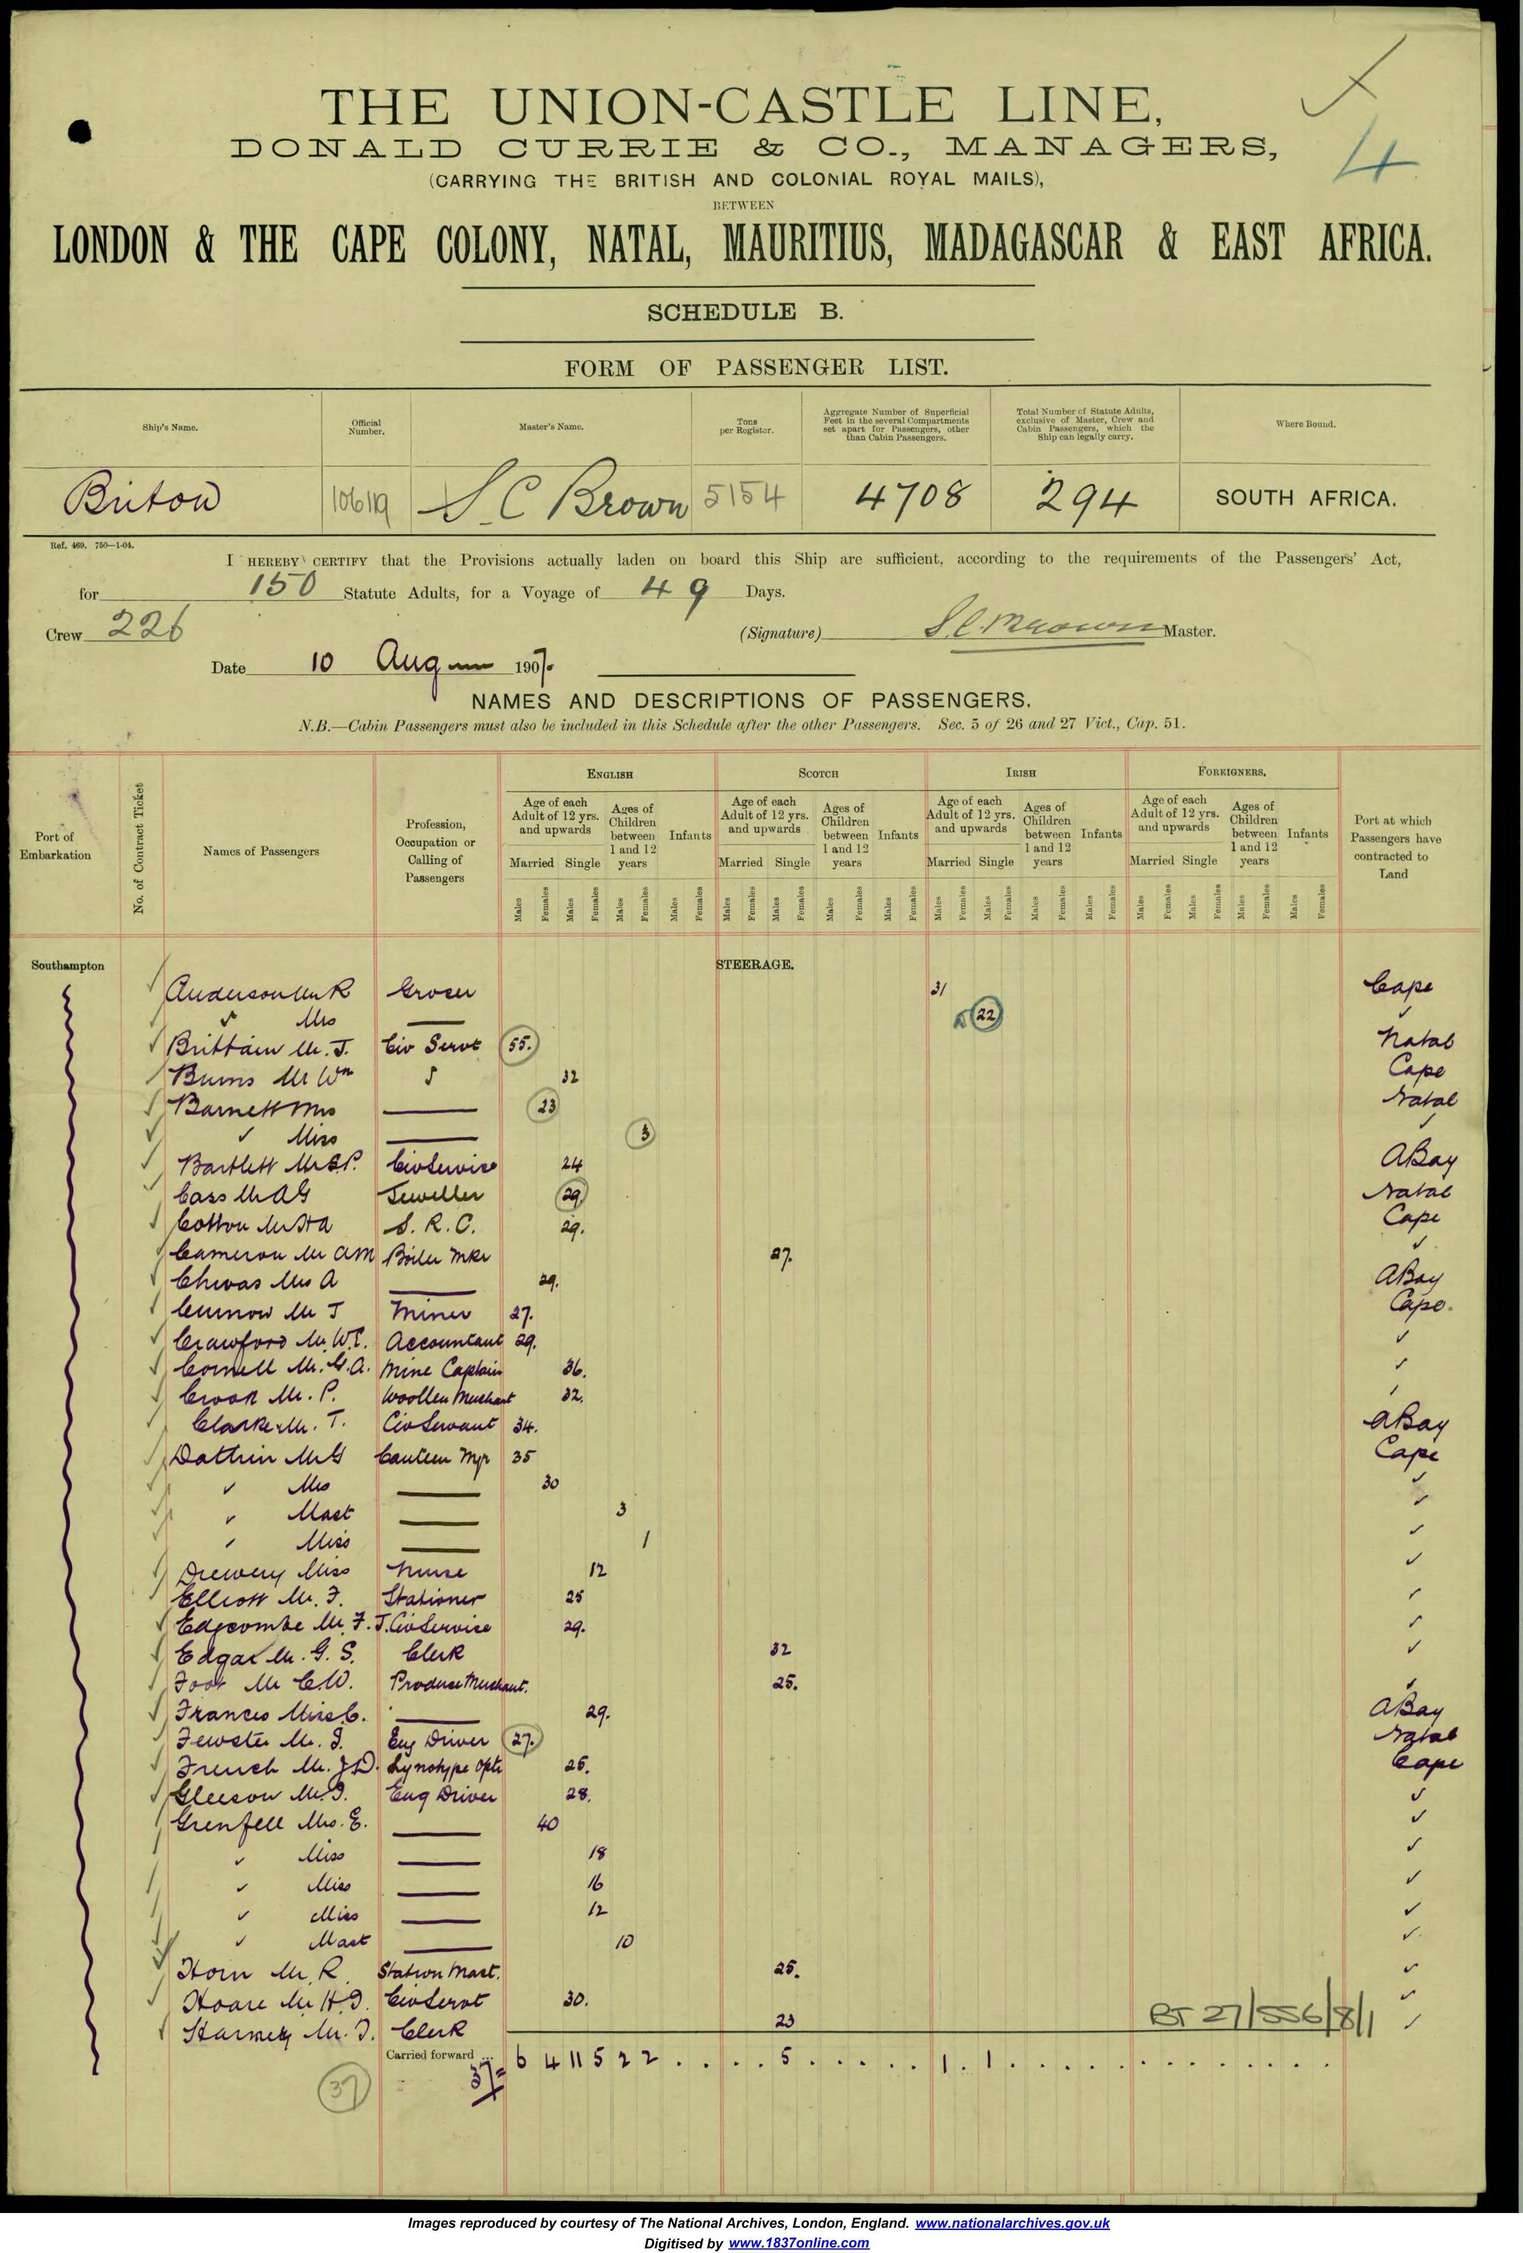 4
THE UNION-CASTLE LINE,
DONALD CURRIE & CO., MANAGERS,
(CARRYING THE BRITISH AND COLONIAL ROYAL MAILS),
BETWEEN
LONDON & THE CAPE COLONY, NATAL, MAURITIUS, MADAGASCAR & EAST AFRICA.
SCHEDULE B.
FORM OF PASSENGER LIST.
Ship's Name. Official Number. Master's Name. Tons per Register. Aggregate Number of Superficial Feet in the several Compartments set apart for Passengers, other than Cabin Passengers. Total Number of Statute Adults, exclusive of Master, Crew and Cabin Passengers, which the Ship can legally carry. Where Bound.
Briton 106119 S C Brown 5154 4708 294 SOUTH AFRICA.
Ref. 469. 750—1-04.
I HEREBY CERTIFY that the Provisions actually laden on board this Ship are sufficient, according to the requirements of the Passengers' Act,
for 150 Statute Adults, for a Voyage of 49 Days.
Crew 226 (Signature) S.C. Brown Master.
Date 10 Aug 1907.
NAMES AND DESCRIPTIONS OF PASSENGERS.
N.B.—Cabin Passengers must also be included in this Schedule after the other Passengers. Sec. 5 of 26 and 27 Vict., Cap. 51.
Port of Embarkation No. of Contract Ticket Names of Passengers Profession, Occupation or Calling of Passengers ENGLISH SCOTCH IRISH FOREIGNERS. Port at which Passengers have contracted to Land
Age of each Adult of 12 yrs. and upwards Ages of Children between 1 and 12 years Infants Age of each Adult of 12 yrs. and upwards Ages of Children between 1 and 12 years Infants Age of each Adult of 12 yrs. and upwards Ages of Children between 1 and 12 years Infants Age of each Adult of 12 yrs. and upwards Ages of Children between 1 and 12 years Infants
Married Single Married Single Married Single Married Single
Males Females Males Females Males Females Males Females Males Females Males Females Males Females Males Females Males Females Males Females Males Females Males Females Males Females Males Females Males Females Males Females
Southampton STEERAGE.
Anderson Mr R Grocer 31 Cape
✓ Mrs 22 ✓
Brittain Mr. J. Civ Servt 55. Natal
Burns Mr Wm 32 Cape
Barnett Mrs 23 Natal
✓ Miss 3 ✓
Bartlett Mr S.P. Civ Service 24 A Bay
Cass Mr A G Jeweller 29. Natal
Cotton Mr H A S. R. C. 29. Cape
Cameron Mr A M Boiler Mkr 27. ✓
Chivas Mrs A 29. A Bay
Curnow Mr J Miner 27. Cape.
Crawford Mr. W.C. Accountant 29. ✓
Cornell Mr. G. A. Mine Captain 36. ✓
Crook Mr. P. Woollen Merchant 32.
Clarke Mr. T. Civ Servant 34. A Bay
Dathin Mr G Canteen Mgr 35 Cape
✓ Mrs 30 ✓
✓ Mast 3 ✓
✓ Miss 1 ✓
Drewery Miss Nurse 12 ✓
Elliott Mr. F. Stationer 25 ✓
Edgcombe Mr. F. J. Civ Service 29. ✓
Edgar Mr. G. S. Clerk 32 ✓
Foot Mr C.W. Produce Merchant. 25. ✓
Frances Miss C. 29. A Bay
Fewster Mr. J. Eng Driver 27. Natal
French Mr. J D. Lynotype Optr 25. Cape
Gleeson Mr. J. Eng Driver 28. ✓
Grenfell Mrs. E. 40 ✓
✓ Miss 18 ✓
✓ Miss 16 ✓
✓ Miss 12 ✓
✓ Mast 10 ✓
Horn Mr. R. Station Mast. 25. ✓
Hoare Mr. H. J. Civ Servt 30. ✓
Mr. J. Clerk 23 ✓
BT 27/556/8/1
Carried forward ... 6 4 11 5 2 2 . . . . 5 . . . . . 1 . 1 . . . . . . . . . . . . .
37 37=
Images reproduced by courtesy of The National Archives, London, England. www.nationalarchives.gov.uk
Digitised by www.1837online.com